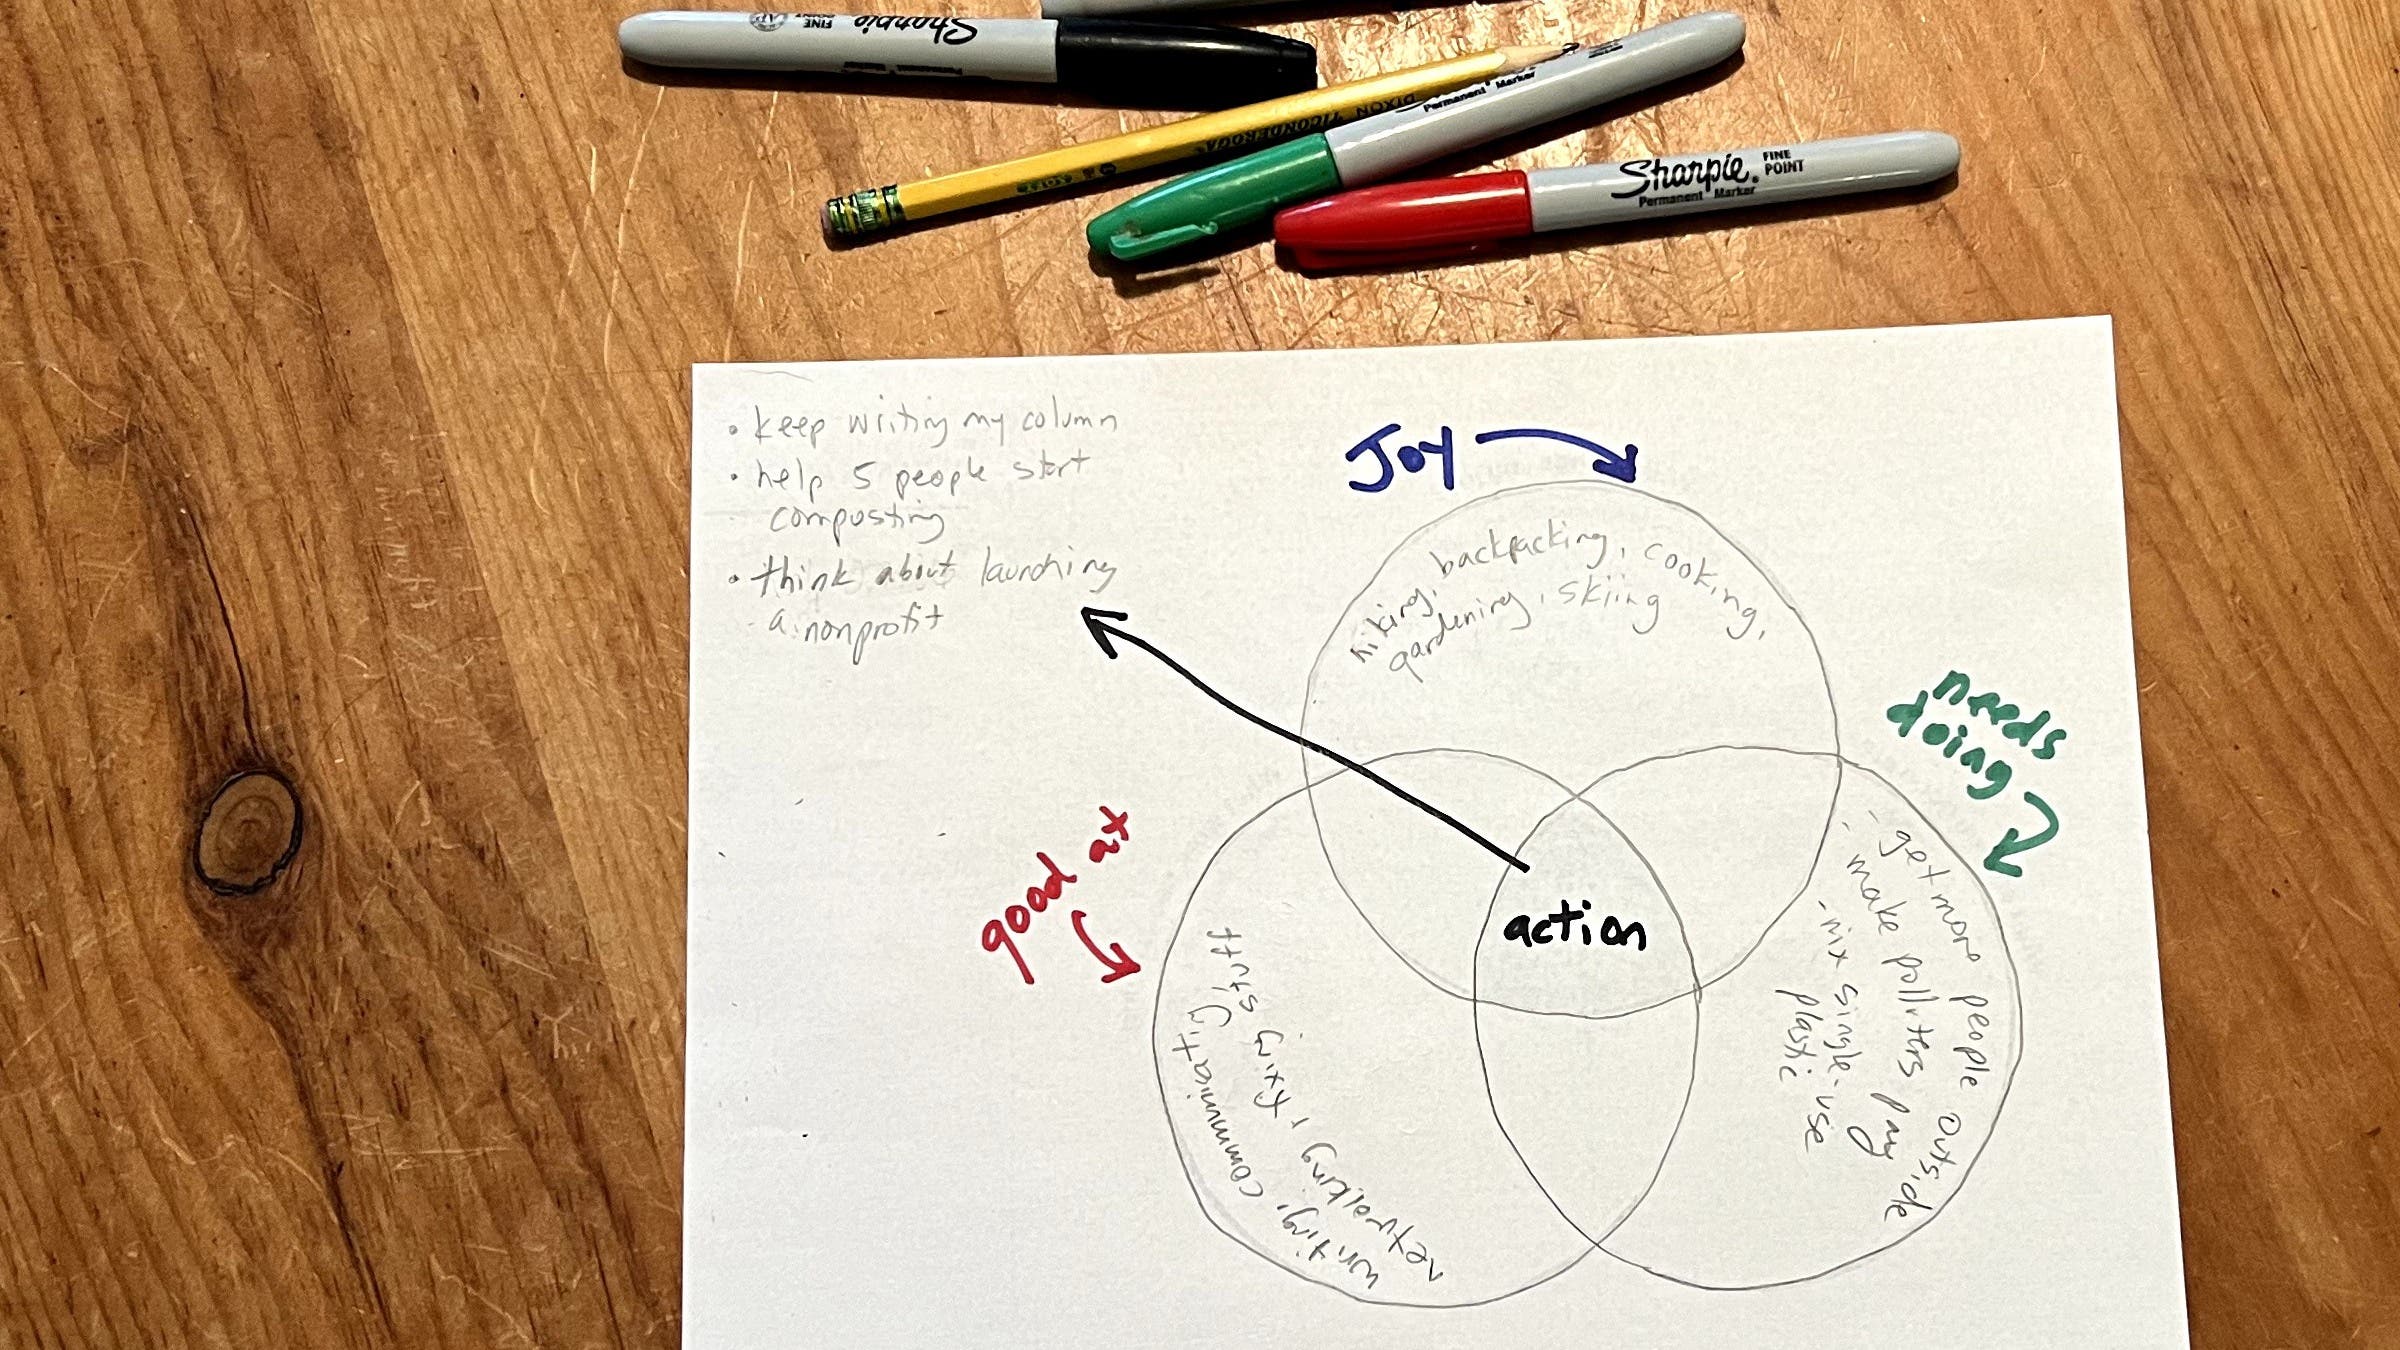 Sharpie
FINE
POINT
Permanent Marker
Permanent Marker
DIXON TICONDEROGA
Sharpie
FINE
POINT
Permanent Marker
• keep writing my column
• help 5 people start
composting
• think about launching
a nonprofit
Joy
hiking, backpacking, cooking,
gardening, skiing
needs
doing
- get more people outside
- make polluters pay
- nix single-use
plastic
good at
writing, communicating,
networking, fixing stuff
action